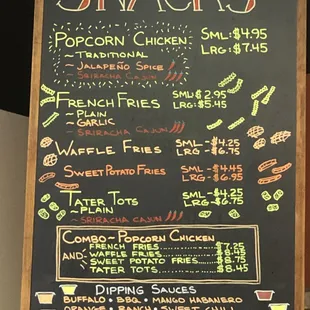 SNACKS
POPCORN CHICKEN SML: $4.95
~ TRADITIONAL LRG: $7.45
~ JALAPEÑO SPICE
~ SRIRACHA CAJUN
FRENCH FRIES SML: $2.95
~ PLAIN LRG: $5.45
~ GARLIC
~ SRIRACHA CAJUN
WAFFLE FRIES SML - $4.25
LRG - $6.75
SWEET POTATO FRIES SML - $4.45
LRG - $6.95
TATER TOTS SML - $4.25
~ PLAIN LRG - $6.75
~ SRIRACHA CAJUN
COMBO - POPCORN CHICKEN
AND FRENCH FRIES $7.25
WAFFLE FRIES $8.45
SWEET POTATO FRIES $8.75
TATER TOTS $8.45
DIPPING SAUCES
BUFFALO • BBQ • MANGO HABANERO
ORANGE • RANCH • SWEET CHILI